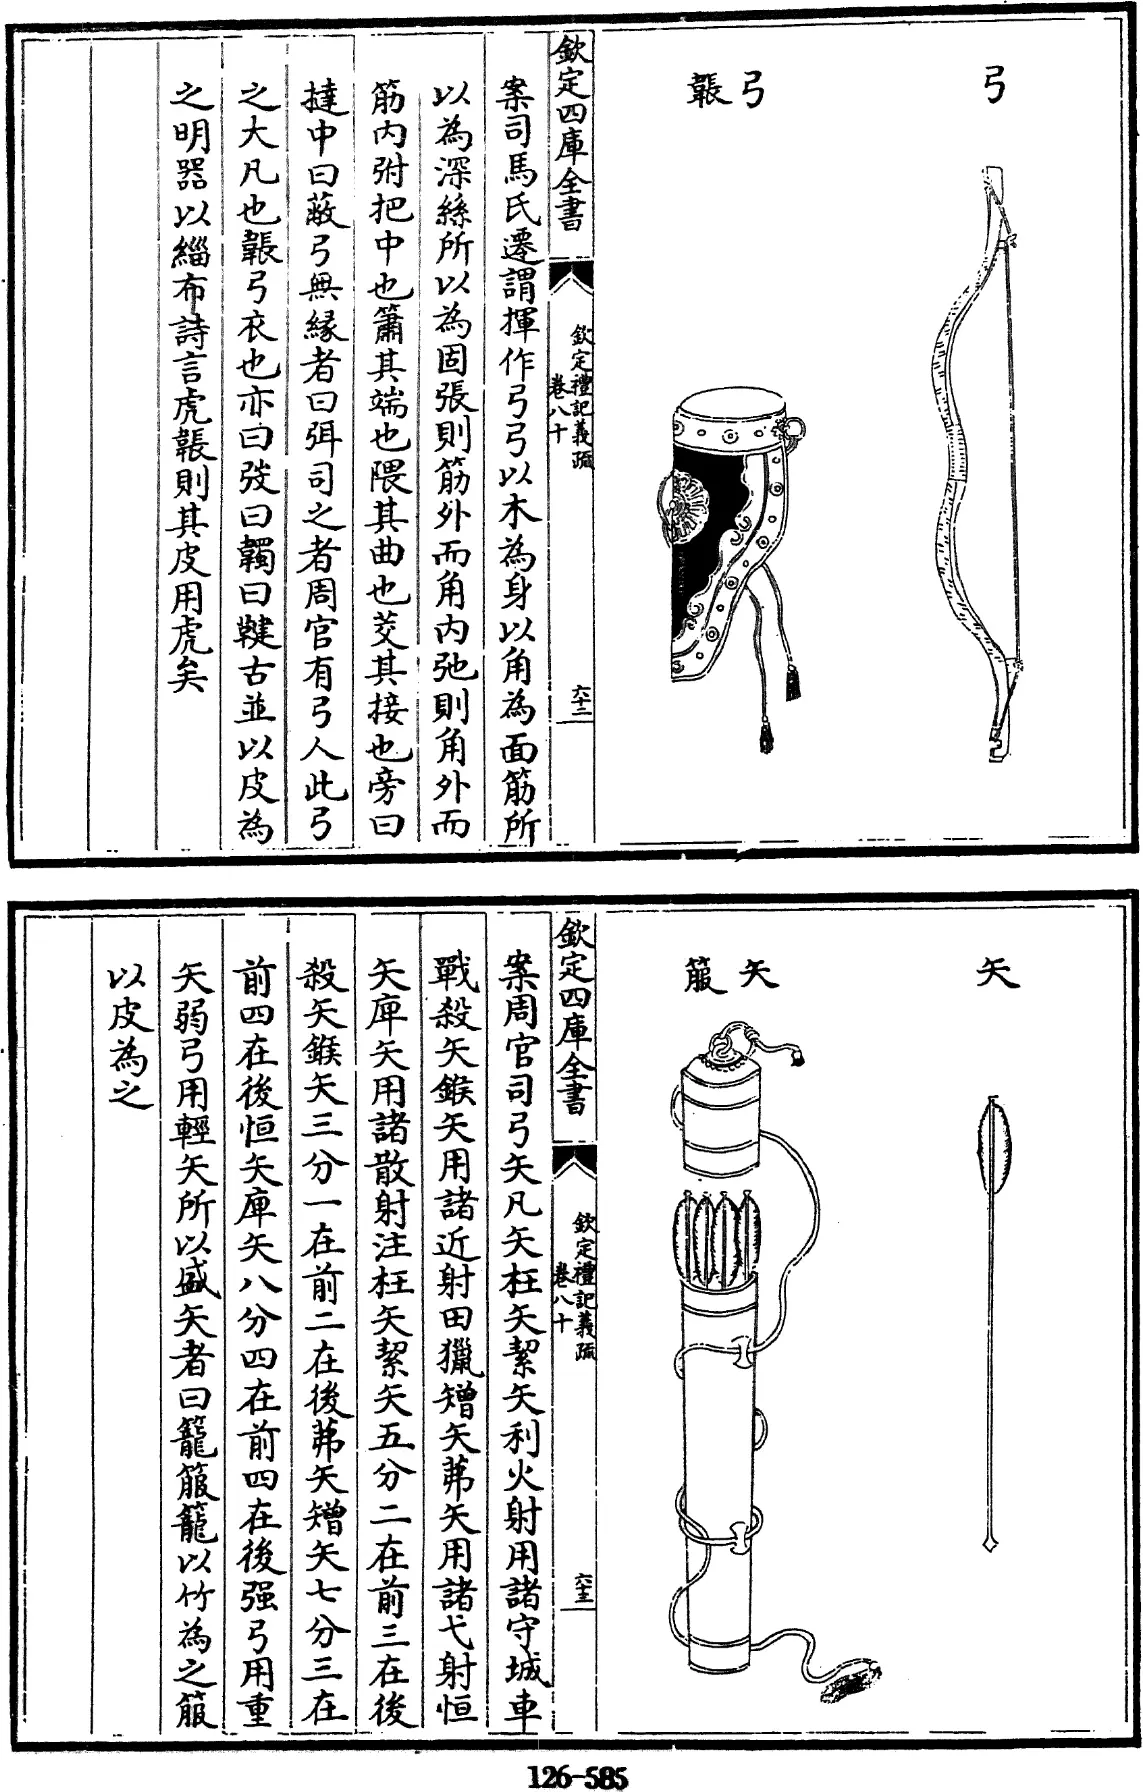 弓
弓韔
欽定四庫全書
欽定禮記義疏
卷八十
六十二
案司馬氏遷謂揮作弓弓以木為身以角為面筋所
以為深絲所以為固張則筋外而角內弛則角外而
筋內弣把中也簫其端也隈其曲也茭其接也旁曰
㩉中曰蔽弓無緣者曰弭司之者周官有弓人此弓
之大凡也韔弓衣也亦曰弢曰韣曰鞬古並以皮為
之明器以緇布詩言虎韔則其皮用虎矣
矢
矢箙
欽定四庫全書
欽定禮記義疏
卷八十
六十三
案周官司弓矢凡矢枉矢絜矢利火射用諸守城車
戰殺矢鍭矢用諸近射田獵矰矢茀矢用諸弋射恒
矢庳矢用諸散射注枉矢絜矢五分二在前三在後
殺矢鍭矢三分一在前二在後茀矢矰矢七分三在
前四在後恒矢庳矢八分四在前四在後强弓用重
矢弱弓用輕矢所以盛矢者曰籠箙籠以竹為之箙
以皮為之
126-585